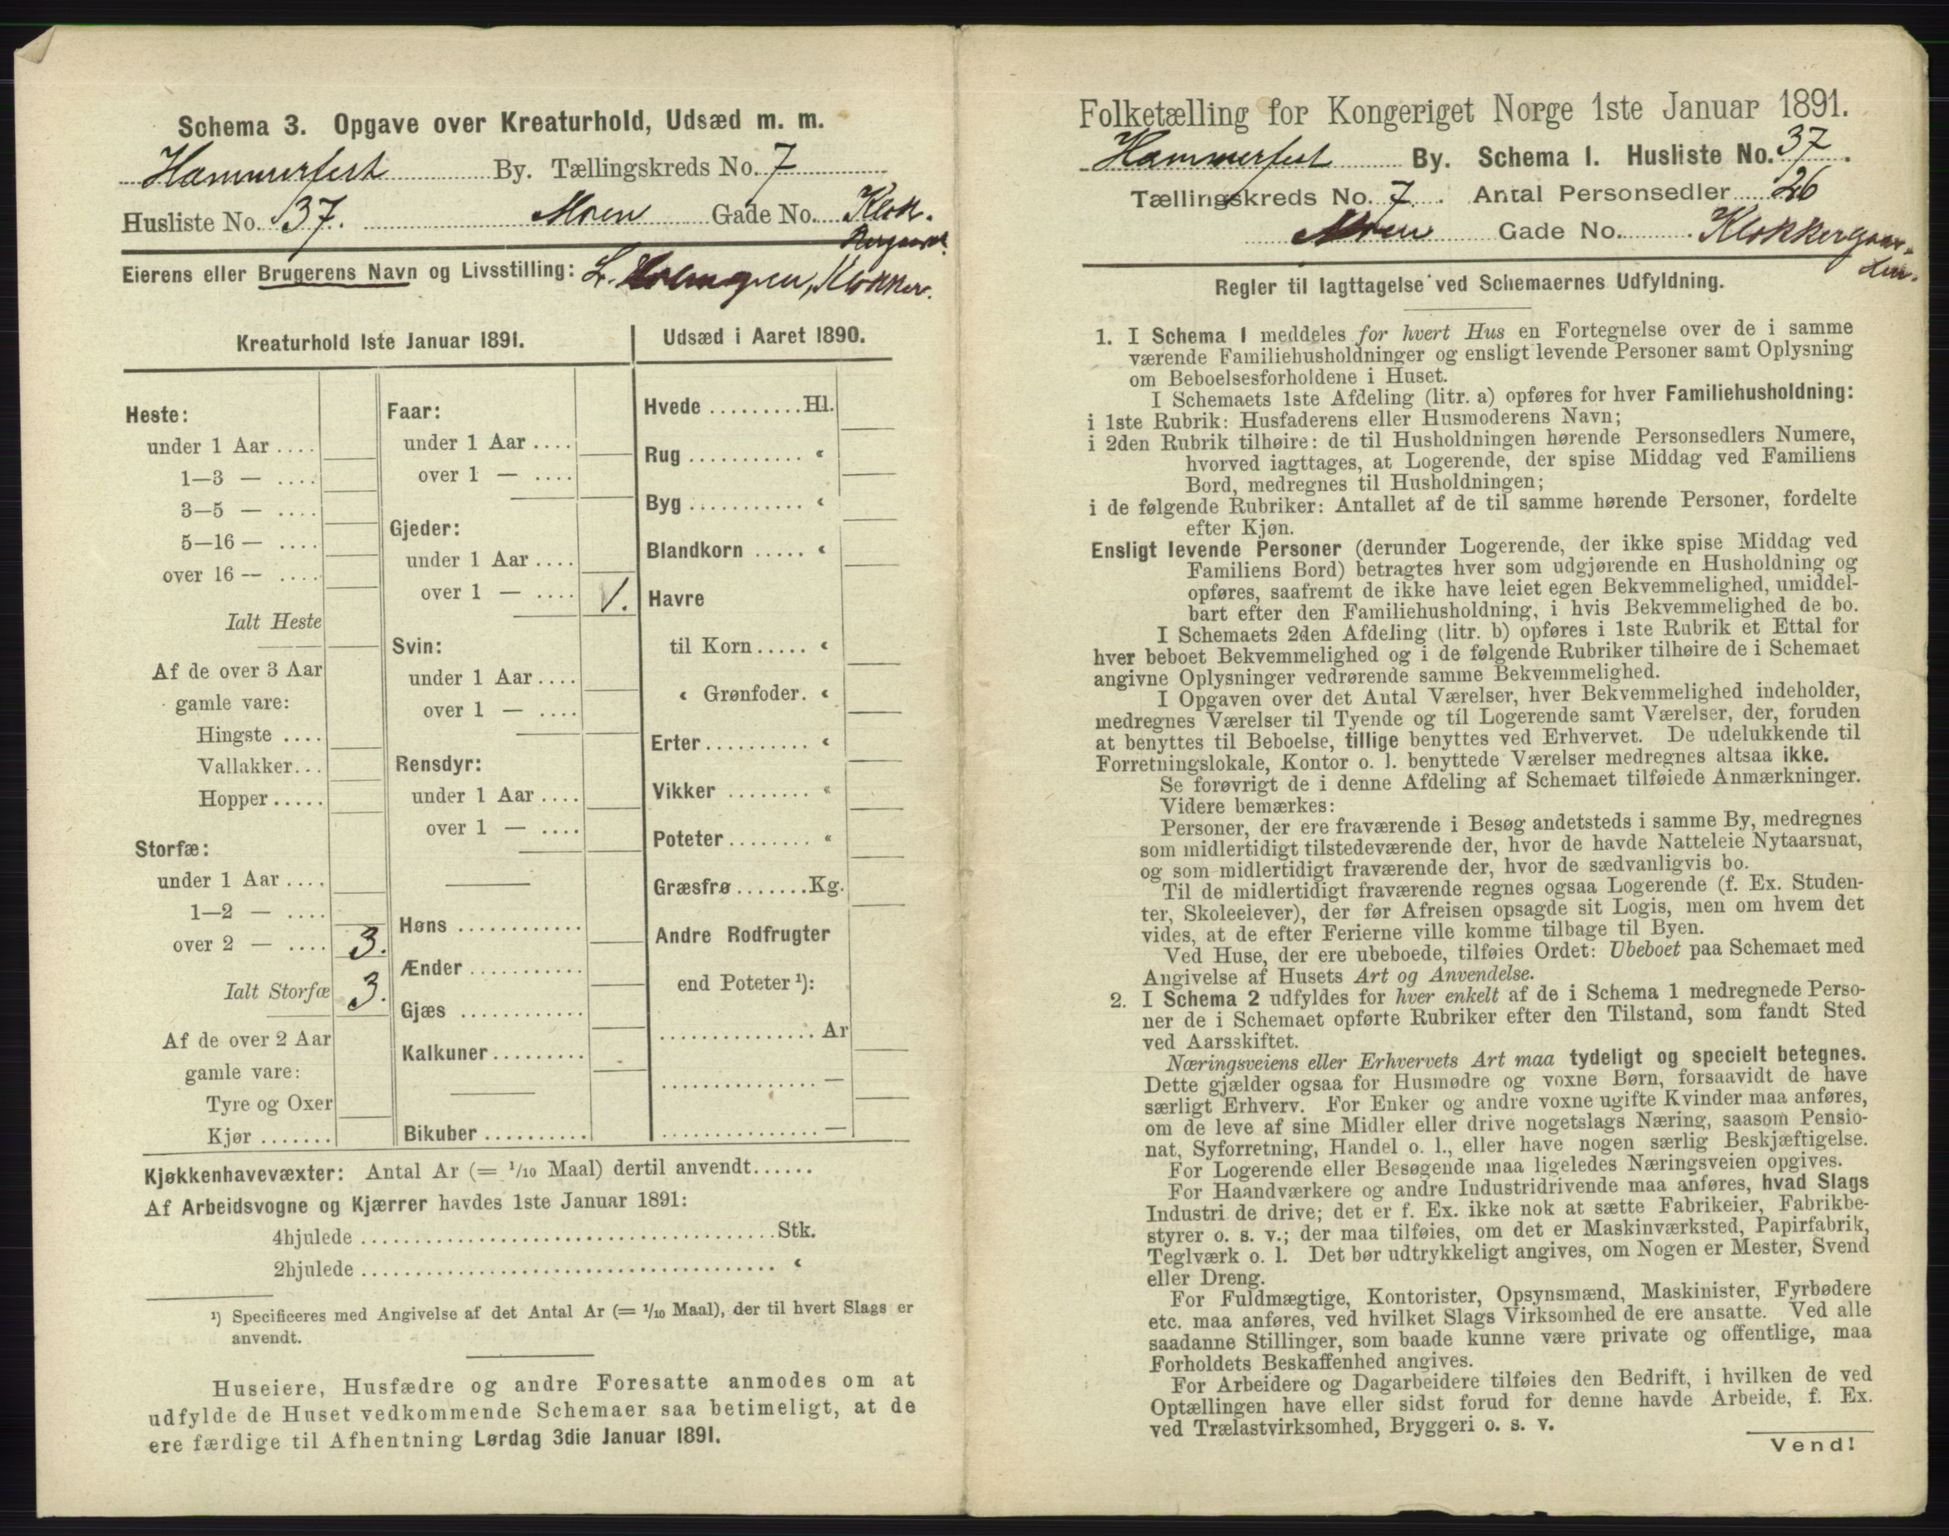 Schema 3. Opgave over Kreaturhold, Udsæd m. m.
Hammerfest By. Tællingskreds No. 7
Husliste No. 37. Moren Gade No. Klok-
kergaard.
Eierens eller Brugerens Navn og Livsstilling: L. Holmgren, Klokker.
Kreaturhold 1ste Januar 1891.
Heste:
under 1 Aar ....
1—3 — ....
3—5 — ....
5—16 — ....
over 16 — ....
Ialt Heste
Af de over 3 Aar
gamle vare:
Hingste ....
Vallakker...
Hopper.....
Storfæ:
under 1 Aar....
1—2 — ....
over 2 — .... 3.
Ialt Storfæ 3.
Af de over 2 Aar
gamle vare:
Tyre og Oxer
Kjør.......
Faar:
under 1 Aar....
over 1 — ....
Gjeder:
under 1 Aar....
over 1 — .... 1.
Svin:
under 1 Aar....
over 1 — ....
Rensdyr:
under 1 Aar....
over 1 — ....
Høns
Ænder
Gjæs
Kalkuner
Bikuber
Udsæd i Aaret 1890.
Hvede .........Hl.
Rug ........... “
Byg ........... “
Blandkorn ..... “
Havre
til Korn..... “
“ Grønfoder. “
Erter.......... “
Vikker ........ “
Poteter........ “
Græsfrø.......Kg.
Andre Rodfrugter
end Poteter ¹):
............... Ar
............... —
............... —
Kjøkkenhavevæxter: Antal Ar (= 1/10 Maal) dertil anvendt......
Af Arbeidsvogne og Kjærrer havdes 1ste Januar 1891:
4hjulede ......................................Stk.
2hjulede ...................................... “
¹) Specificeres med Angivelse af det Antal Ar (= 1/10 Maal), der til hvert Slags er
anvendt.
Huseiere, Husfædre og andre Foresatte anmodes om at
udfylde de Huset vedkommende Schemaer saa betimeligt, at de
ere færdige til Afhentning Lørdag 3die Januar 1891.
Folketælling for Kongeriget Norge 1ste Januar 1891.
Hammerfest By. Schema 1. Husliste No. 37.
Tællingskreds No. 7. Antal Personsedler 26
Moren Gade No. Klokkergaar-
den.
Regler til Iagttagelse ved Schemaernes Udfyldning.
1. I Schema 1 meddeles for hvert Hus en Fortegnelse over de i samme
værende Familiehusholdninger og ensligt levende Personer samt Oplysning
om Beboelsesforholdene i Huset.
I Schemaets 1ste Afdeling (litr. a) opføres for hver Familiehusholdning:
i 1ste Rubrik: Husfaderens eller Husmoderens Navn;
i 2den Rubrik tilhøire: de til Husholdningen hørende Personsedlers Numere,
hvorved iagttages, at Logerende, der spise Middag ved Familiens
Bord, medregnes til Husholdningen;
i de følgende Rubriker: Antallet af de til samme hørende Personer, fordelte
efter Kjøn.
Ensligt levende Personer (derunder Logerende, der ikke spise Middag ved
Familiens Bord) betragtes hver som udgjørende en Husholdning og
opføres, saafremt de ikke have leiet egen Bekvemmelighed, umiddel-
bart efter den Familiehusholdning, i hvis Bekvemmelighed de bo.
I Schemaets 2den Afdeling (litr. b) opføres i 1ste Rubrik et Ettal for
hver beboet Bekvemmelighed og i de følgende Rubriker tilhøire de i Schemaet
angivne Oplysninger vedrørende samme Bekvemmelighed.
I Opgaven over det Antal Værelser, hver Bekvemmelighed indeholder,
medregnes Værelser til Tyende og til Logerende samt Værelser, der, foruden
at benyttes til Beboelse, tillige benyttes ved Erhvervet. De udelukkende til
Forretningslokale, Kontor o. l. benyttede Værelser medregnes altsaa ikke.
Se forøvrigt de i denne Afdeling af Schemaet tilføiede Anmærkninger.
Videre bemærkes:
Personer, der ere fraværende i Besøg andetsteds i samme By, medregnes
som midlertidigt tilstedeværende der, hvor de havde Natteleie Nytaarsnat,
og som midlertidigt fraværende der, hvor de sædvanligvis bo.
Til de midlertidigt fraværende regnes ogsaa Logerende (f. Ex. Studen-
ter, Skoleelever), der før Afreisen opsagde sit Logis, men om hvem det
vides, at de efter Ferierne ville komme tilbage til Byen.
Ved Huse, der ere ubeboede, tilføies Ordet: Ubeboet paa Schemaet med
Angivelse af Husets Art og Anvendelse.
2. I Schema 2 udfyldes for hver enkelt af de i Schema 1 medregnede Perso-
ner de i Schemaet opførte Rubriker efter den Tilstand, som fandt Sted
ved Aarsskiftet.
Næringsveiens eller Erhvervets Art maa tydeligt og specielt betegnes.
Dette gjælder ogsaa for Husmødre og voxne Børn, forsaavidt de have
særligt Erhverv. For Enker og andre voxne ugifte Kvinder maa anføres,
om de leve af sine Midler eller drive nogetslags Næring, saasom Pensio-
nat, Syforretning, Handel o. l., eller have nogen særlig Beskjæftigelse.
For Logerende eller Besøgende maa ligeledes Næringsveien opgives.
For Haandværkere og andre Industridrivende maa anføres, hvad Slags
Industri de drive; det er f. Ex. ikke nok at sætte Fabrikeier, Fabrikbe-
styrer o. s. v.; der maa tilføies, om det er Maskinværksted, Papirfabrik,
Teglværk o. l. Det bør udtrykkeligt angives, om Nogen er Mester, Svend
eller Dreng.
For Fuldmægtige, Kontorister, Opsynsmænd, Maskinister, Fyrbødere
etc. maa anføres, ved hvilket Slags Virksomhed de ere ansatte. Ved alle
saadanne Stillinger, som baade kunne være private og offentlige, maa
Forholdets Beskaffenhed angives.
For Arbeidere og Dagarbeidere tilføies den Bedrift, i hvilken de ved
Optællingen have eller sidst forud for denne havde Arbeide, f. Ex.
ved Trælastvirksomhed, Bryggeri o. s. v.
Vend!